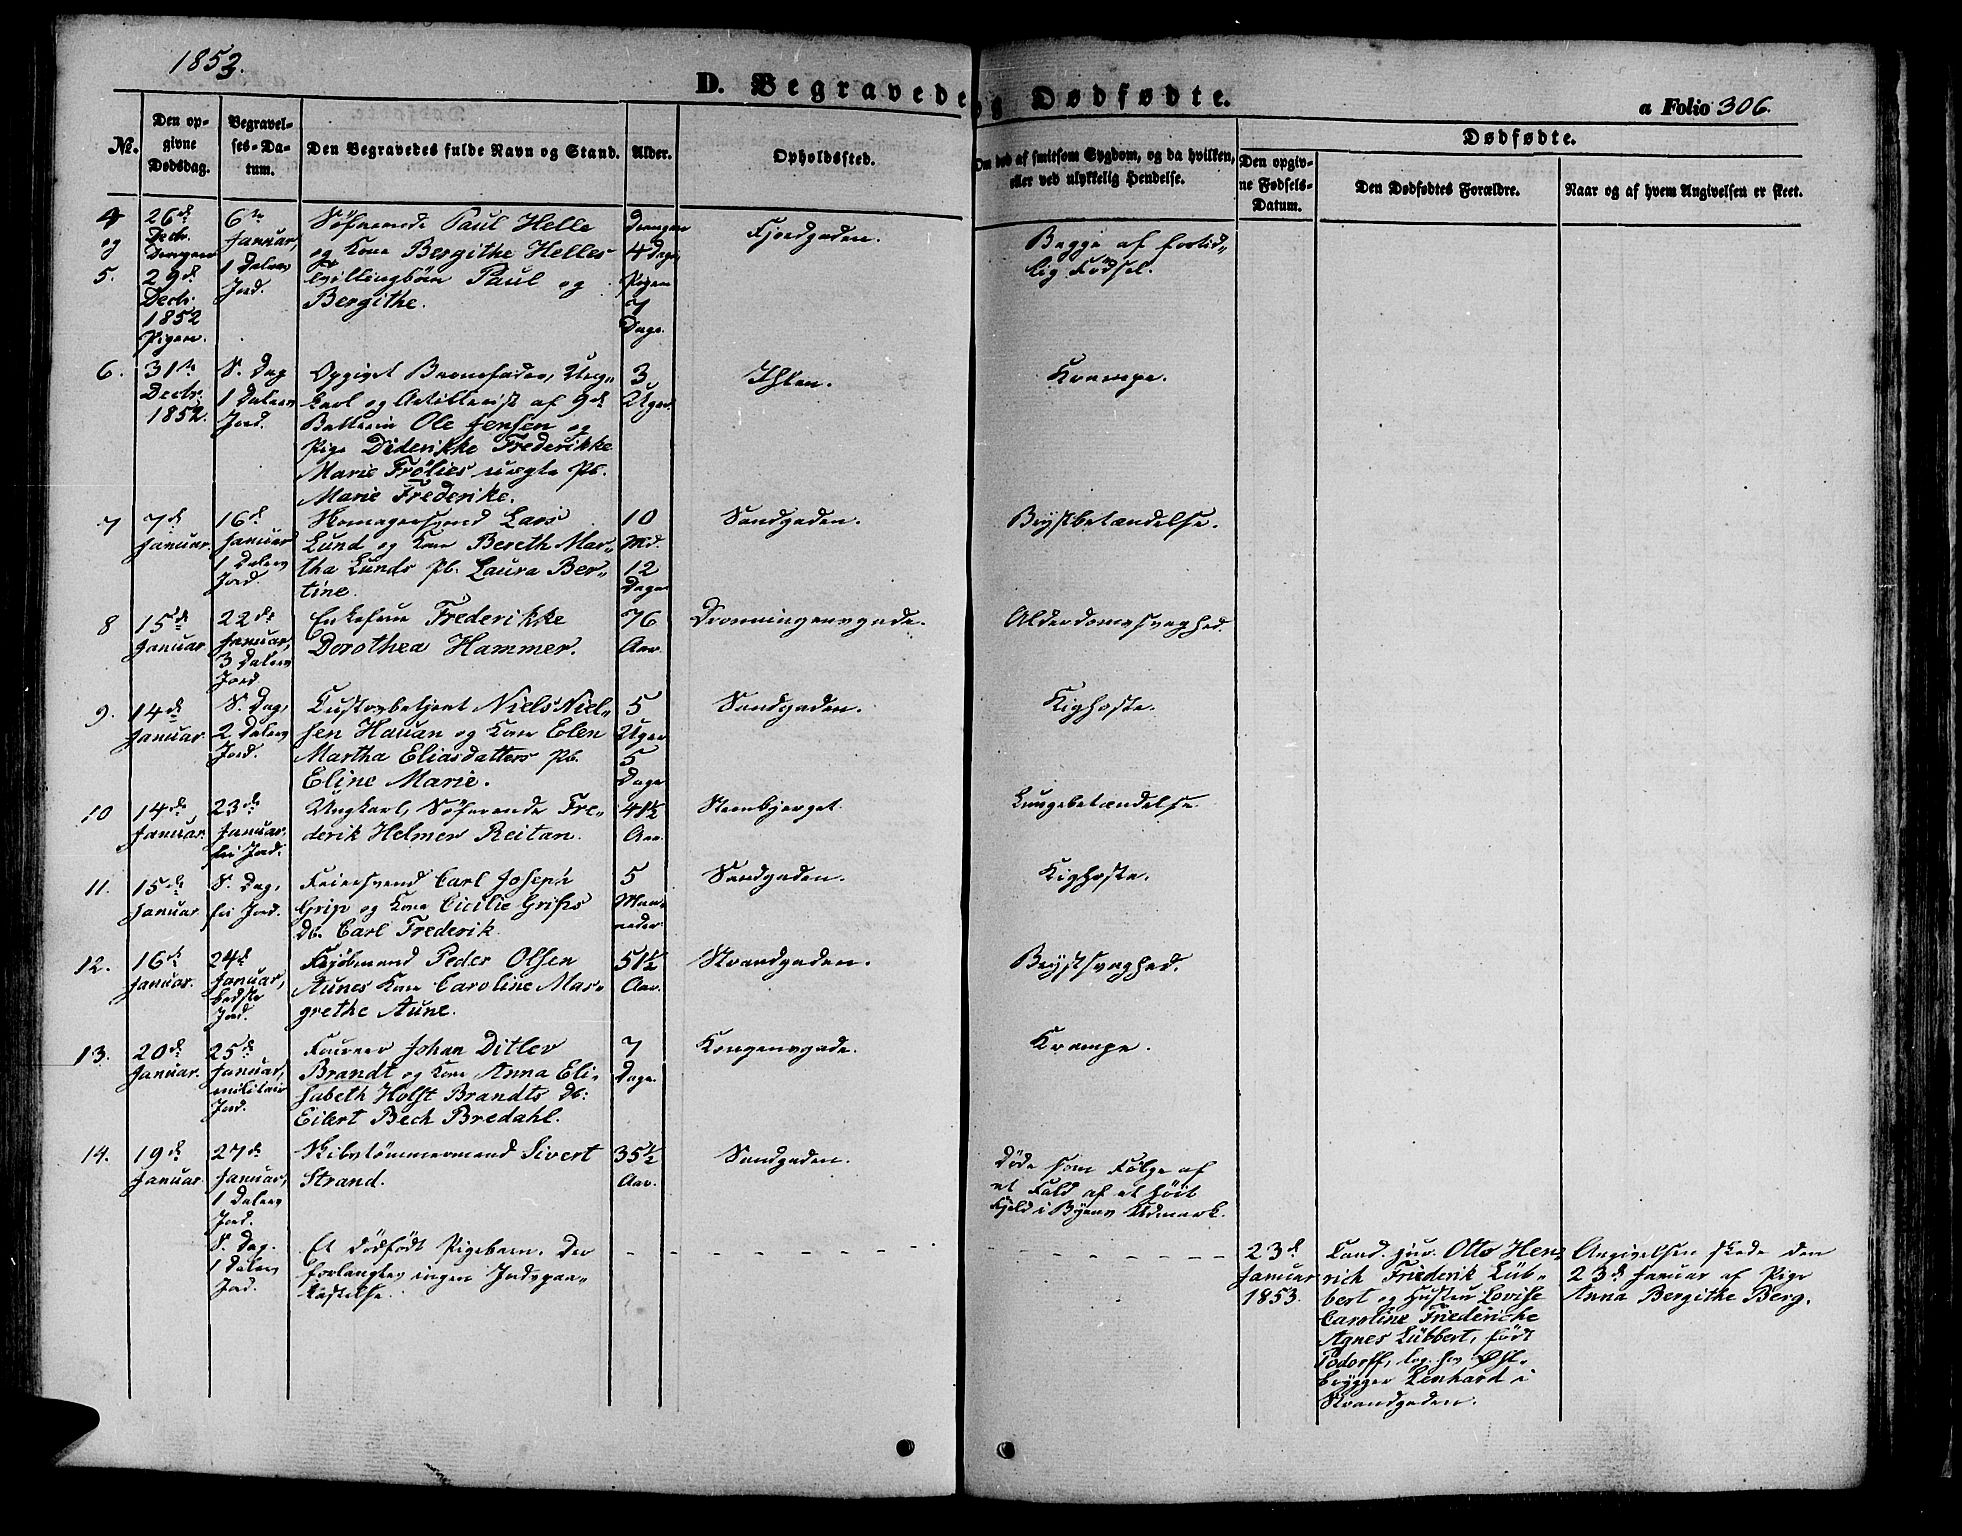 1853.
D. Begravede og Dødfødte.
a Folio 306.
No.
Den opgivne Dødsdag.
Begravelses-Datum.
Den Begravedes fulde Navn og Stand.
Alder.
Opholdsfted.
Om død af smitsom Sygdom, og da hvilken,
eller ved ulykkelig Hendelse.
Dødfødte.
Den opgivne Fødsels-Datum.
Den Dødfødtes Forældre.
Naar og af hvem Angivelsen er skeet.
4 og 5.
26de Decbr. Drengen
29de Decbr. 1852 Pigen.
6te Januar, 1 Dalers Jord.
Søfarende Paul Helle
og Kone Bergithe Helles
Tvillingbørn Paul og
Bergithe.
Drengen 4 Dage, Pigen 7 Dage.
Fjordgaden.
Begge af fortid-
lig Fødsel.
6.
31te Decbr. 1852.
S. Dag 1 Dalers Jord.
Opgivet Barnefader, Ung-
karl og Artillerist af 9de
Batterie Ole Jensen og
Pige Diderikke Frederikke
Marie Frölies uægte Pb.
Marie Frederike.
3 Uger.
Ihlen.
Krampe.
7
7de Januar.
16de Januar 1 Dalers Jord.
Lars
Lund og Kone Bereth Mar-
tha Lunds Pb. Laura Ber-
tine.
10 Md. 12 Dage
Sandgaden.
Brystbetændelse.
8
15de Januar.
22de Januar, 3 Dalers Jord.
Enkefrue Frederikke
Dorothea Hammer.
76 Aar.
Dronningensgade.
Alderdomssvaghed.
9.
14de Januar.
S. Dag, 2 Dalers Jord.
Niels Niel-
sen Hauan og Kone Elen
Martha Eliasdatters Pb.
Eline Marie.
5 Uger 5 Dage
Sandgaden.
Kighoste.
10
14de Januar.
23de Januar. fri Jord.
Ungkarl, Søfarende Fre-
derik Helmer Reitan.
41½ Aar.
Steenbjerget.
Lungebetændelse.
11.
15de Januar
S. Dag, fri Jord.
Feiersvend Carl Joseph
Grip og Kone Cicilie Grips
Db. Carl Frederik.
5 Maaneder
Sandgaden.
Kighoste.
12.
16de Januar.
24de Januar, bedste Jord.
Kjøbmand Peder Olsen
Aunes Kone Caroline Mar-
grethe Aune.
51½ Aar.
Strandgaden.
Brystsvaghed.
13.
20de Januar.
25de Januar, militair Jord.
Fourer Johan Ditlev
Brandt og Kone Anna Eli-
sabeth Holst Brandts Db:
Eilert Bech Bredahl.
7 Dage.
Kongensgade.
Krampe.
14.
19de Januar.
27de Januar, 1 Dalers Jord.
Skibstømmermand Sivert
Strand.
35½ Aar.
Sandgaden.
Døde som Følge af
et Fald af et høit
Fjeld i Byens Udmark.
S. Dag. 1 Dalers Jord.
Et dødfødt Pigebarn. Der
forlangtes ingen Jordspaa-
kastelse.
23de Januar 1853.
Cand. jur. Otto Hen-
rich Friederik Lüb-
bert og Hustru Lovise
Caroline Friederiche
Agnes Lübbert, født
Todorff, log. hos Øl-
brygger Lenhard i
Strandgaden.
Angivelsen skede den
23de Januar af Pige
Anna Bergithe Berg.